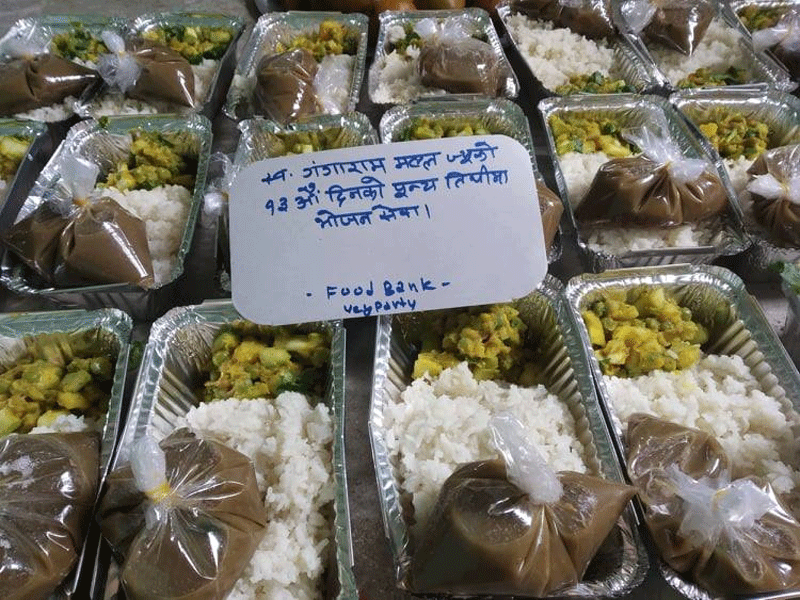 स्व. गंगाराम महत ज्यूको
१३ औं दिनको पून्य तिथीमा
भोजन सेवा।
- Food Bank -
Veg Party